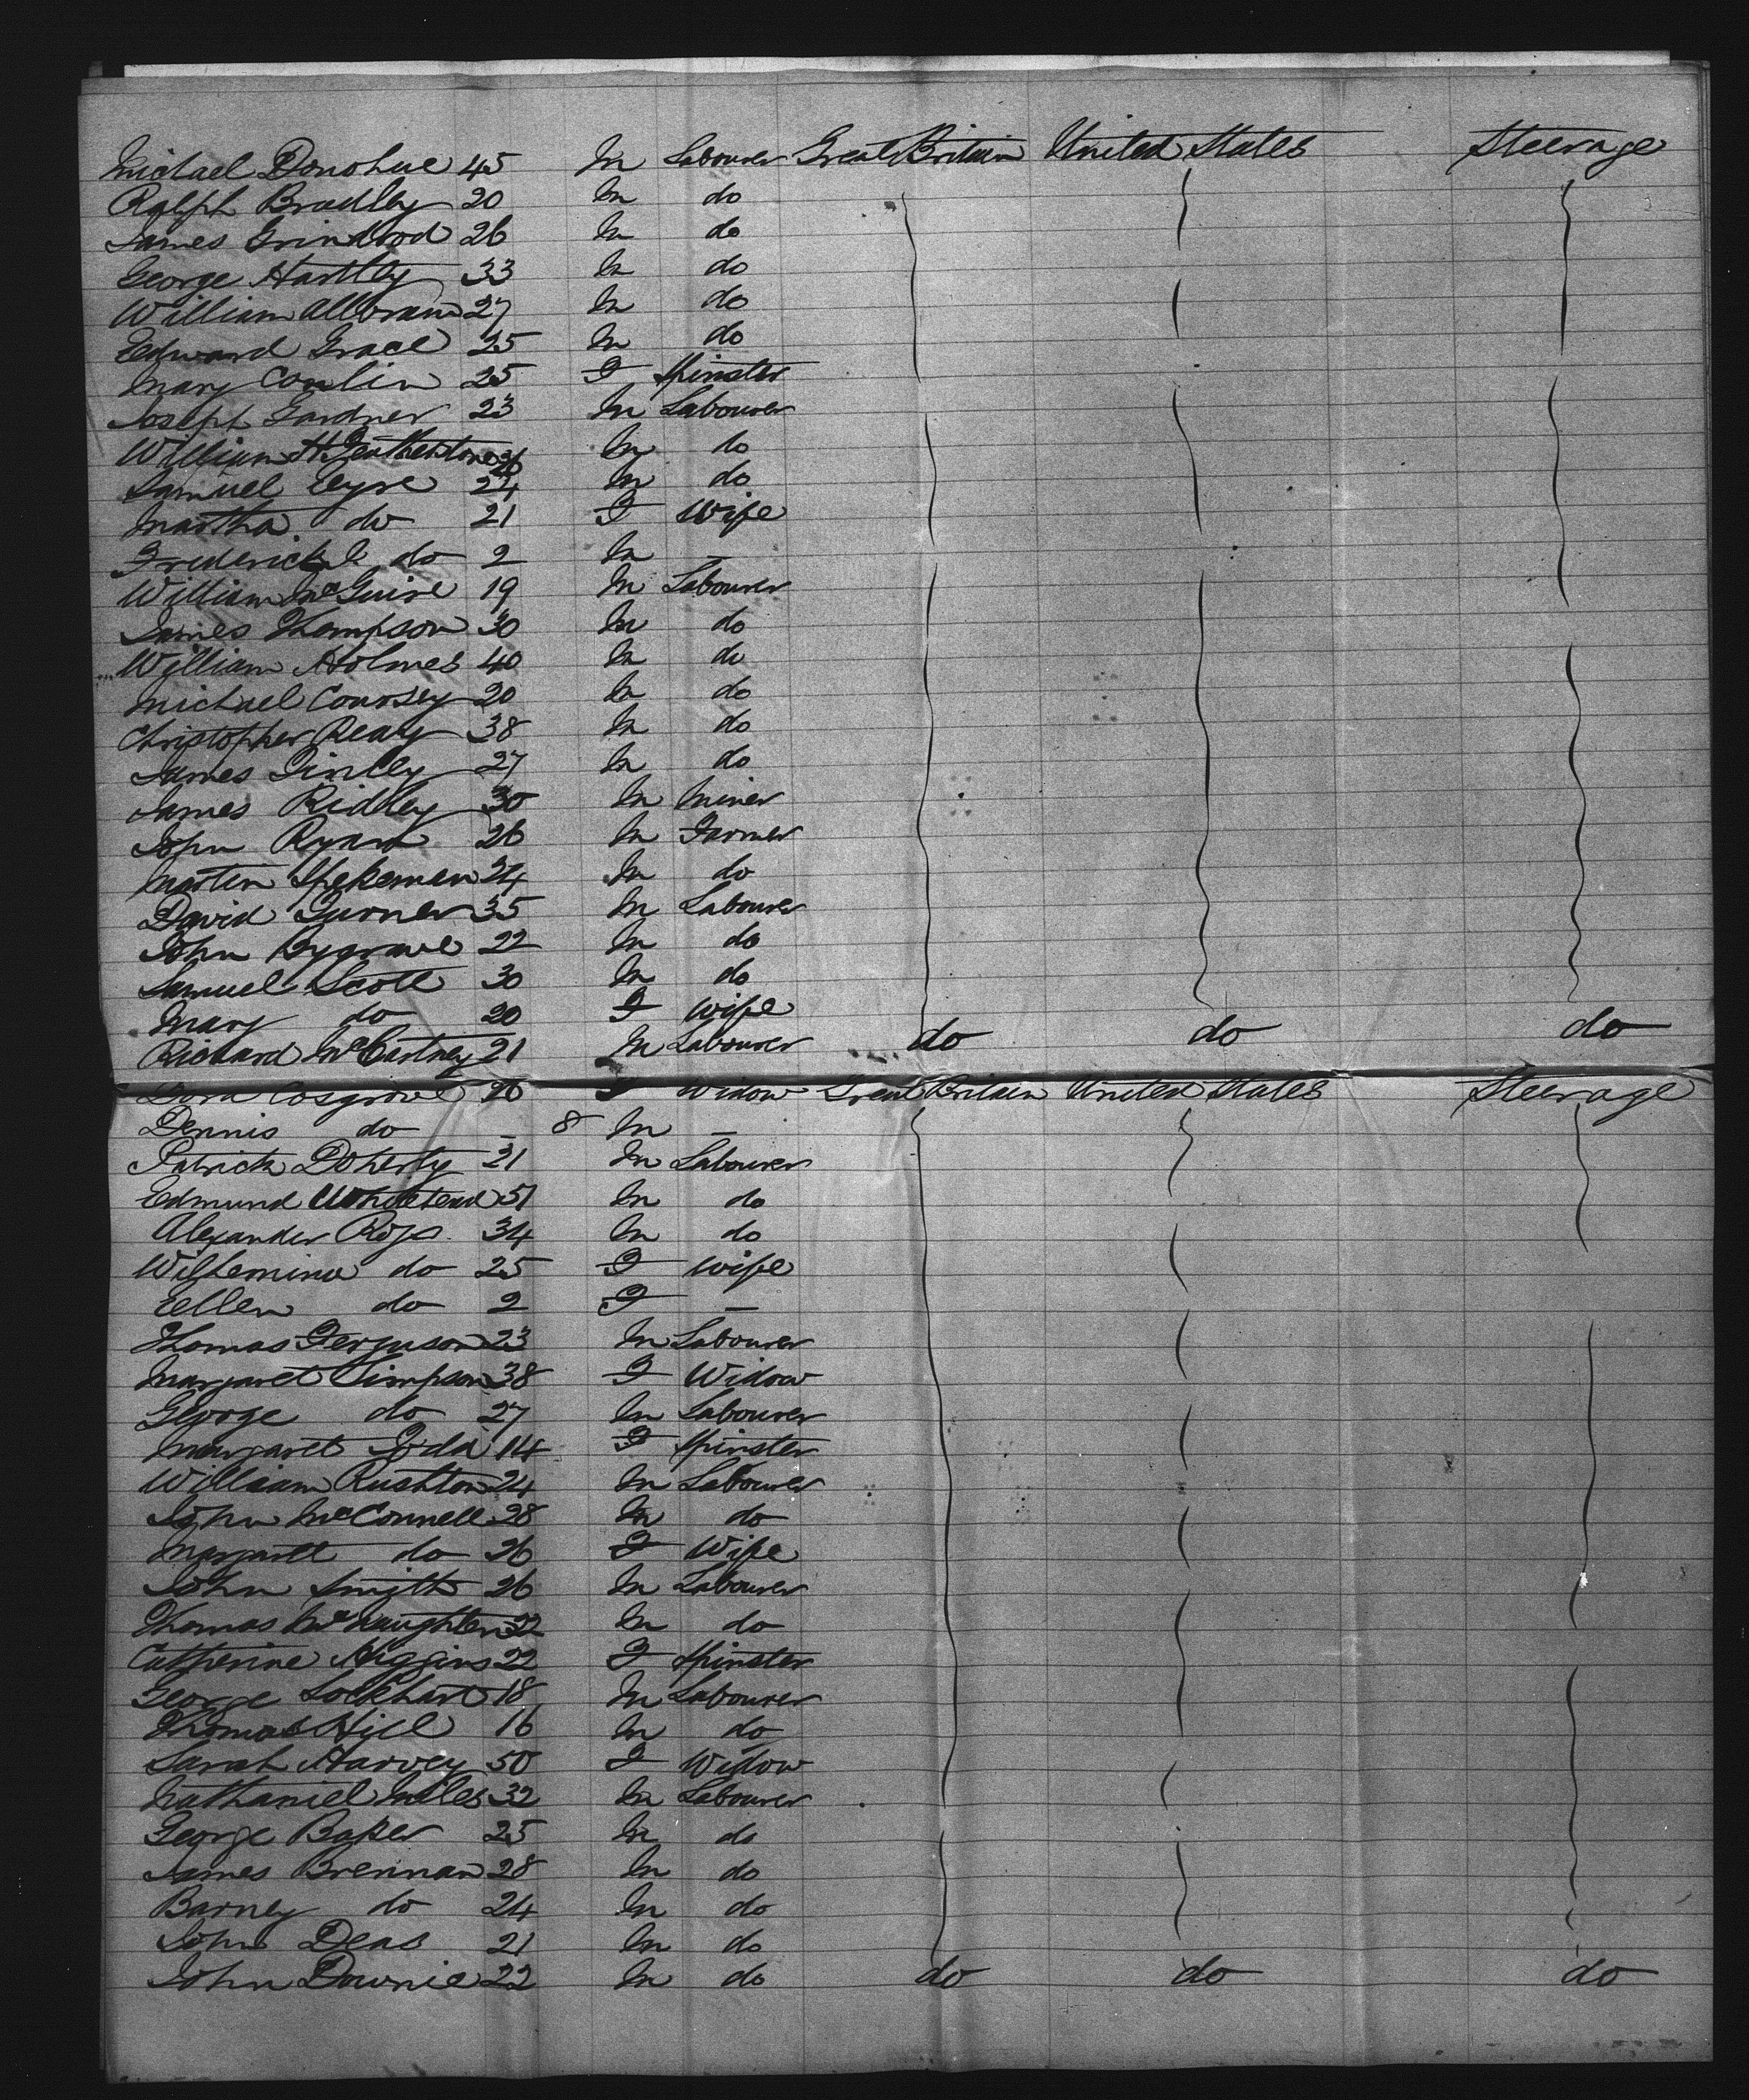 Michael Donohue 45 M Labourer Great Britain United States Steerage
Ralph Bradley 20 M do
James Grindrod 26 M do
George Hartley 33 M do
William Allbram 27 M do
Edward Grace 25 M do
Mary Conlin 25 F Spinster
Joseph Gardner 23 M Labourer
William H. Featherstone M do
Samuel Eyre 24 M do
Martha do 21 F Wife
Frederick do 2 M —
William McGuire 19 M Labourer
James Thompson 30 M do
William Holmes 40 M do
Michael Coursey 20 M do
Christopher Ready 38 M do
James Ginley 27 M do
James Ridley 30 M Miner
John Ryan 26 M Farmer
Martin Spekeman 24 M do
David Turner 35 M Labourer
John Bygrave 22 M do
Samuel Scott 30 M do
Mary do 20 F Wife
Richard McCartney 21 M Labourer do do do
Dora Cosgrove F Widow Great Britain United States Steerage
Dennis do — 8 M —
Patrick Doherty 31 M Labourer
Edmund Whitehead 51 M do
Alexander Ross 34 M do
Wilhemina do 25 F Wife
Ellen do 2 F —
Thomas Ferguson 23 M Labourer
Margaret Simpson 38 F Widow
George do 27 M Labourer
Margaret 14 F Spinster
William Rushton 24 M Labourer
John McConnell 28 M do
Margaret do 26 F Wife
John Smith 26 M Labourer
Thomas McNaughten 22 M do
Catherine Higgins 22 F Spinster
George Lockhart 18 M Labourer
Thomas Hill 16 M do
Sarah Harvey 50 F Widow
Nathaniel Miles 32 M Labourer
George Baker 25 M do
James Brennan 28 M do
Barney do 24 M do
John Deas 21 M do
John Downie 22 M do do do do